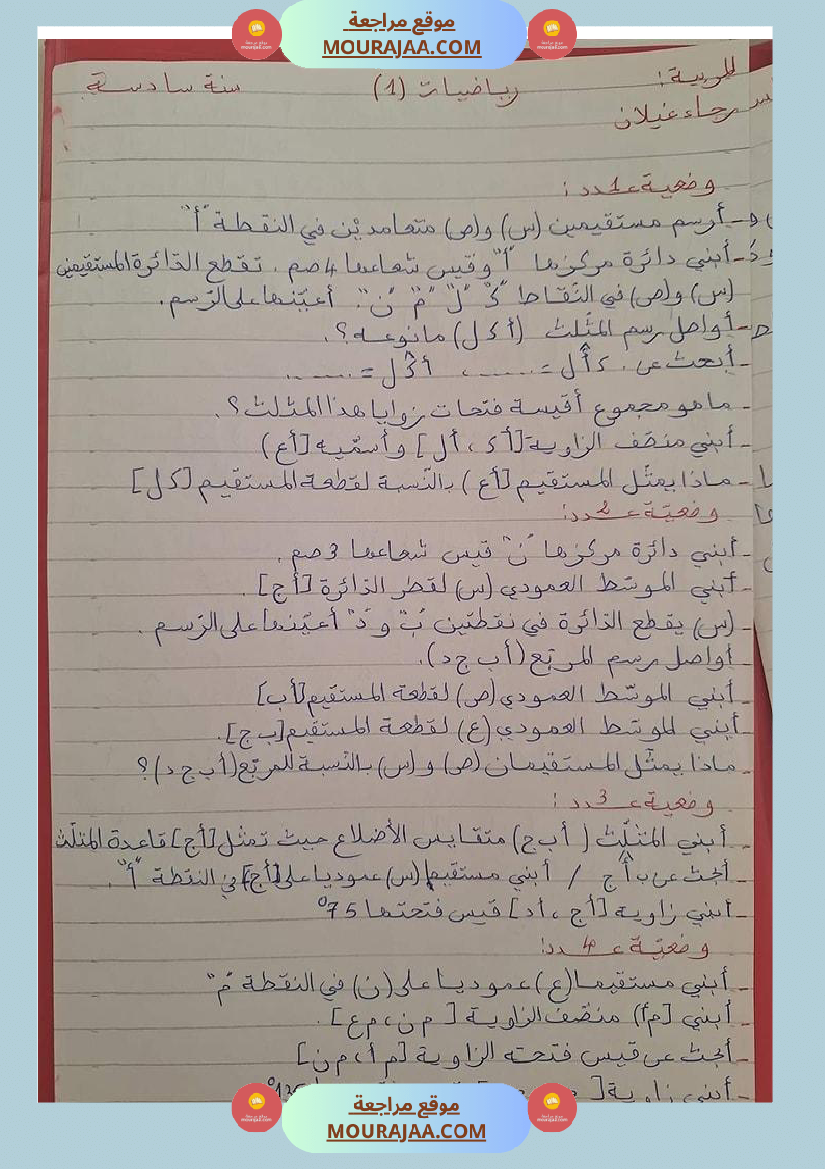 موقع مراجعة
MOURAJAA.COM
للمربية:
رجاء غيلان
رياضيات (1)
سنة سادسة
وضعية عـ1ـدد:
- أرسم مستقيمين (س) و(ص) متعامديْن في النقطة "أ"
- أبني دائرة مركزها "أ" وقيس شعاعها 4صم. تقطع الدّائرة المستقيمين
(س) و(ص) في النّقاط "ك" "ل" "م" "ن". أعيّنها على الرّسم.
- أواصل رسم المثلث (أ ك ل) ما نوعه؟.
- أبحث عن. كأل =......، أكل =.......
- ما هو مجموع أقيسة فتحات زوايا هذا المثلث؟.
- أبني منصّف الزاوية [أ ك ، أ ل] وأسمّيه [أع)
- ماذا يمثّل المستقيم [أع) بالنّسبة لقطعة المستقيم [ك ل]
وضعيّة عـ2ـدد:
- أبني دائرة مركزها "ن" قيس شعاعها 3صم.
- أبني الموسّط العمودي (س) لقطر الدّائرة [أج].
(س) يقطع الدّائرة في نقطتين "ب" و "د" أعيّنها على الرّسم.
أواصل رسم المربّع (أ ب ج د).
- أبني الموسّط العمودي (ص) لقطعة المستقيم [أب]
- أبني الموسّط العمودي (ع) لقطعة المستقيم [ب ج].
- ماذا يمثّل المستقيمان (ص) و (س) بالنّسبة للمربّع (أ ب ج د)؟
وضعية عـ3ـدد:
- أبني المثلّث (أ ب ج) متقايس الأضلاع حيث تمثل [أج] قاعدة المثلّث
- أبحث عن ب أ ج / أبني مستقيم (س) عموديا على [أج] في النقطة "أ".
- أبني زاوية [أج ، أد] قيس فتحتها 75°
وضعيّة عـ4ـدد:
- أبني مستقيما (ع) عموديا على (ن) في النقطة "م"
- أبني [م أ) منصّف الزاوية [م ن ، م ع].
- أبحث عن قيس فتحته الزاوية [م أ ، م ن]
- أبني زاوية
موقع مراجعة
MOURAJAA.COM